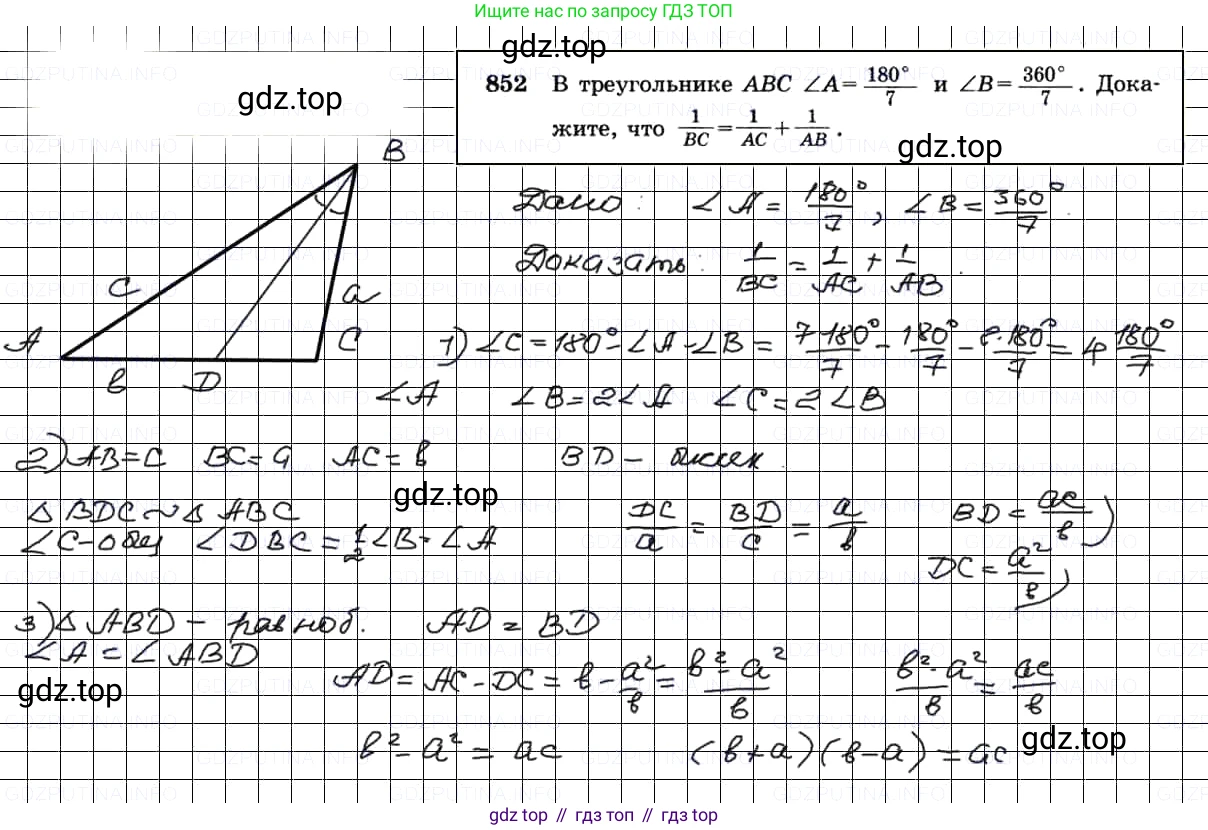 Ищите нас по запросу ГДЗ ТОП
gdz.top
gdz.top
852 В треугольнике ABC ∠A = 180°/7 и ∠B = 360°/7 . Дока-
жите, что 1/BC = 1/AC + 1/AB .
gdz.top
Дано: ∠A = 180°/7, ∠B = 360°/7.
Доказать: 1/BC = 1/AC + 1/AB.
B
C
a
A
C
в
D
1) ∠C = 180° - ∠A - ∠B = 7·180°/7 - 180°/7 - 2·180°/7 = 4 180°/7
∠A ∠B = 2∠A ∠C = 2∠B
2) AB = C BC = a AC = в BD – биссек.
gdz.top
△ BDC ~ △ ABC DC/a = BD/c = a/в BD = ac/в)
∠C – общ ∠DBC = 1/2 ∠B = ∠A DC = a²/в)
3) △ ABD – равноб. AD = BD
∠A = ∠ABD
gdz.top
AD = AC - DC = в - a²/в = в² - a²/в в² - a²/в = ac/в
в² - a² = ac (в + a)(в - a) = ac
gdz.top
gdz top // гдз топ // gdz top